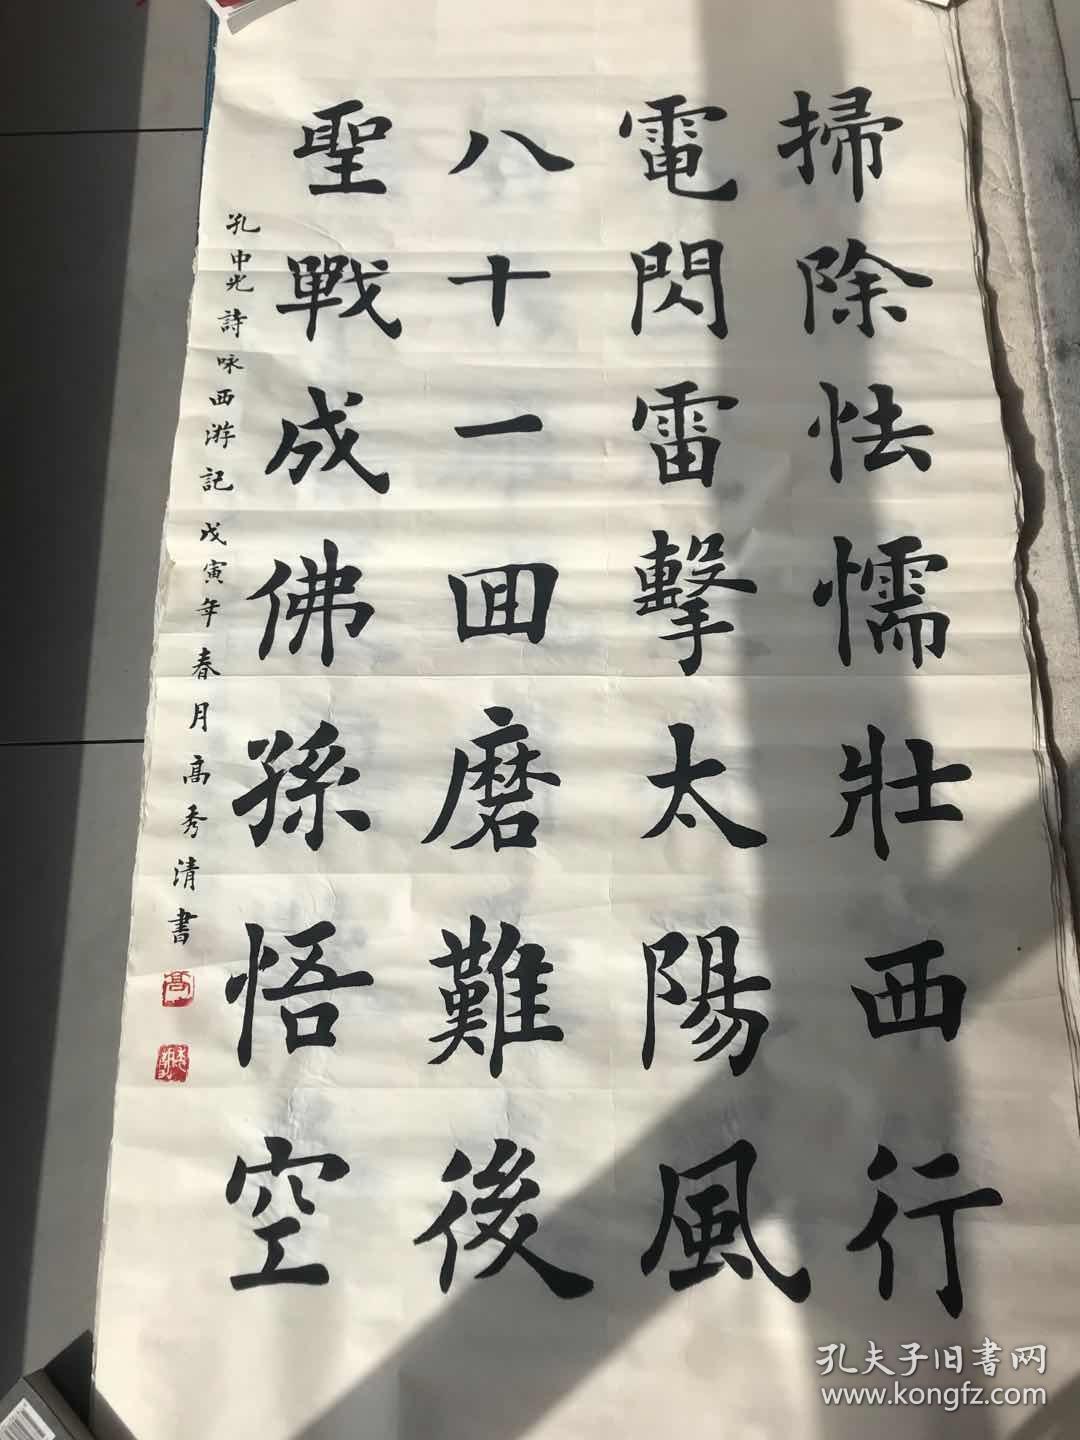 掃除怯懦壯西行
電閃雷擊太陽風
八十一回磨難後
聖戰成佛孫悟空
孔中北詩咏西游記 戊寅年春月高秀清書
孔夫子旧書网
www.kongfz.com